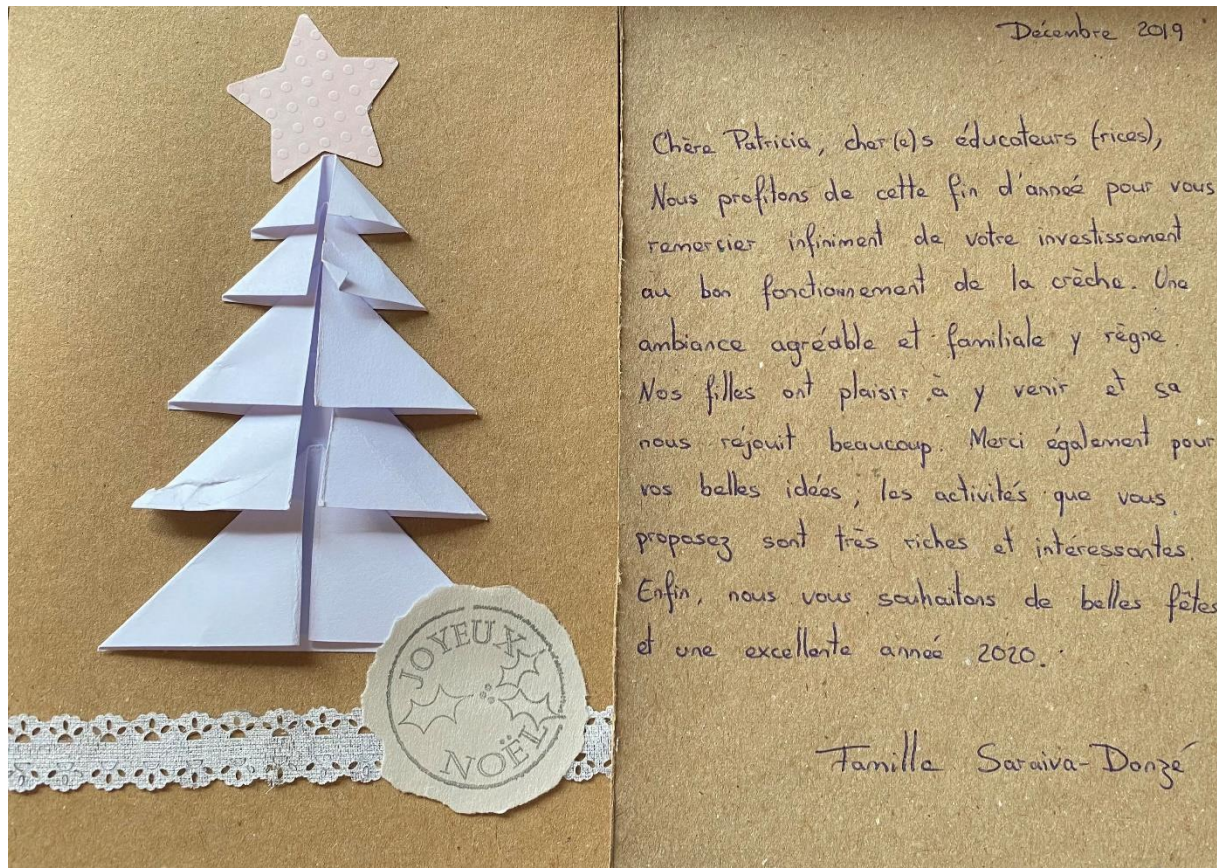 JOYEUX
NOËL
Décembre 2019
Chère Patricia, cher(e)s éducateurs (rices),
Nous profitons de cette fin d'anneé pour vous
remercier infiniment de votre investissement
au bon fonctionnement de la crèche. Une
ambiance agréable et familiale y règne.
Nos filles ont plaisir à y venir et sa
nous réjouit beaucoup. Merci également pour
vos belles idées, les activités que vous
proposez sont très riches et intéressantes.
Enfin, nous vous souhaitons de belles fêtes
et une excellente anneé 2020.
Famille Saraiva-Donzé